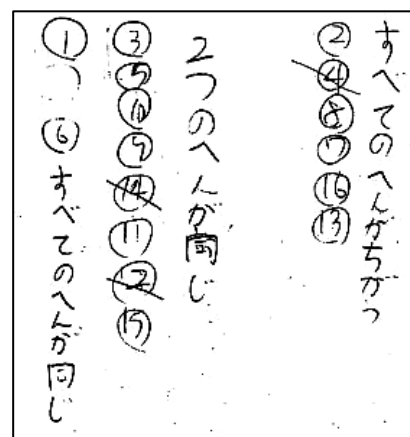 すべてのへんがちがう
② ④ ⑧ ⑦ ⑯ ⑬
2つのへんが同じ
③ ⑤ ⑩ ⑨ ⑭ ⑪ ⑫ ⑮
① ⑥ すべてのへんが同じ